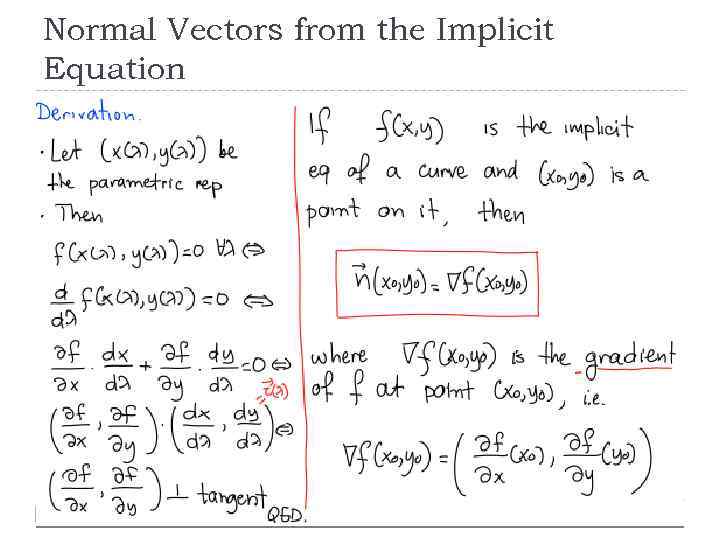 Normal Vectors from the Implicit
Equation
Derivation.
· Let (x(λ), y(λ)) be
the parametric rep
· Then
f(x(λ), y(λ)) = 0 ∀λ ⇔
d/dλ f(x(λ), y(λ)) = 0 ⇔
∂f/∂x · dx/dλ + ∂f/∂y · dy/dλ = 0 ⇔
(∂f/∂x, ∂f/∂y) · (dx/dλ, dy/dλ) ⇔
(∂f/∂x, ∂f/∂y) ⊥ tangent
QED.
If f(x,y) is the implicit
eq of a curve and (x0,y0) is a
point on it, then
n⃗(x0,y0) = ∇f(x0,y0)
where ∇f(x0,y0) is the gradient
of f at point (x0,y0), i.e.
∇f(x0,y0) = (∂f/∂x (x0), ∂f/∂y (y0))